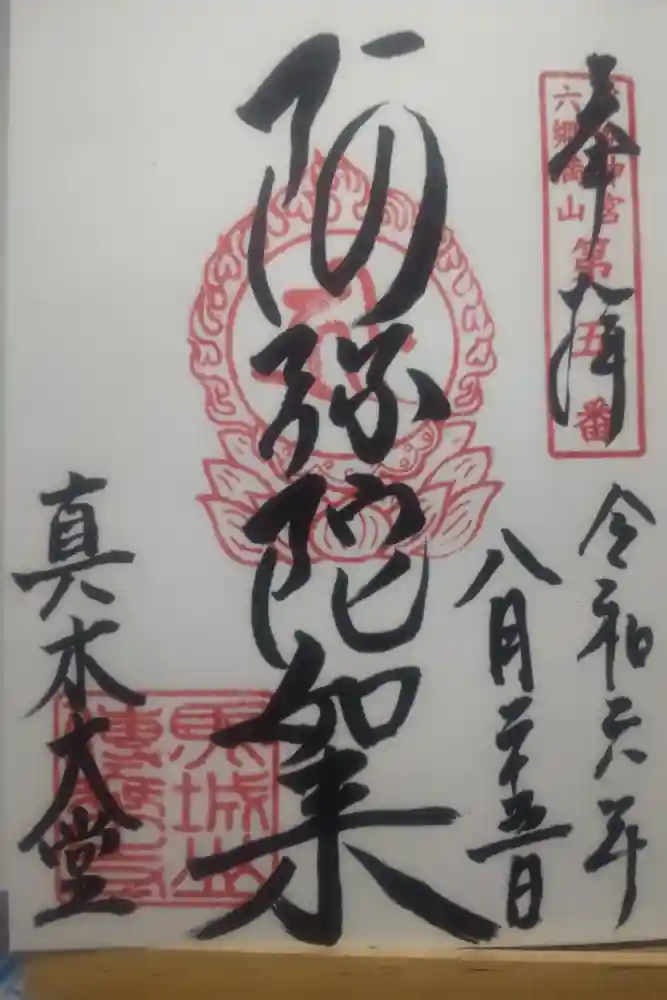 奉拝
神宮
六郷満山
第五番
令和六年
八月二十五日
阿弥陀如来
馬城山
真木大堂